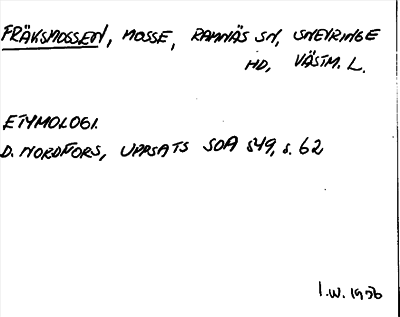 FRÄKSMOSSEN, MOSSE, RAMNÄS SN, SNEVRINGE
HD, VÄSTM. L.
ETYMOLOGI.
D. NORDFORS, UPPSATS SOA 549, s. 62
I.W. 1956